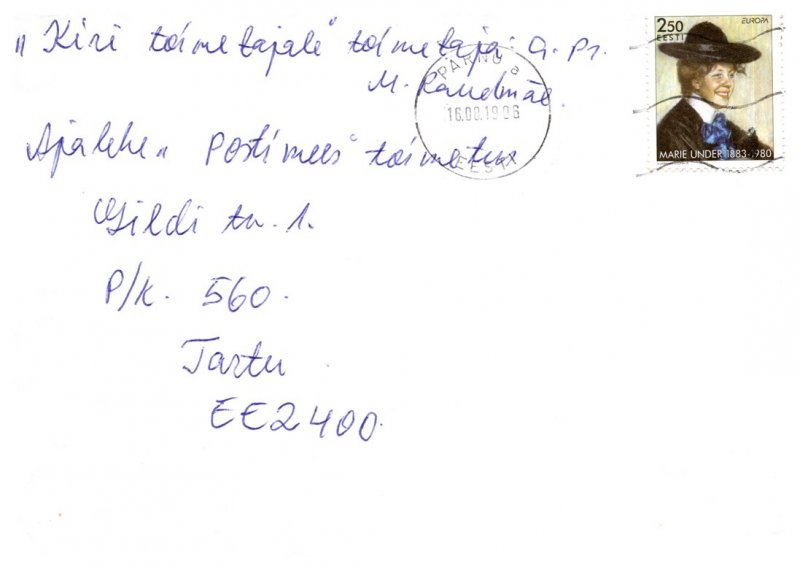 „Kiri toimetajale“ toimetaja: a. pr.
M. Raudmäe
Ajalehe „Postimees“ toimetus
Gildi tn. 1.
P/k. 560.
Tartu
EE2400.
PÄRNU a
16.08.1996
EESTI
2.50 EUROPA
EESTI
MARIE UNDER 1883-1980